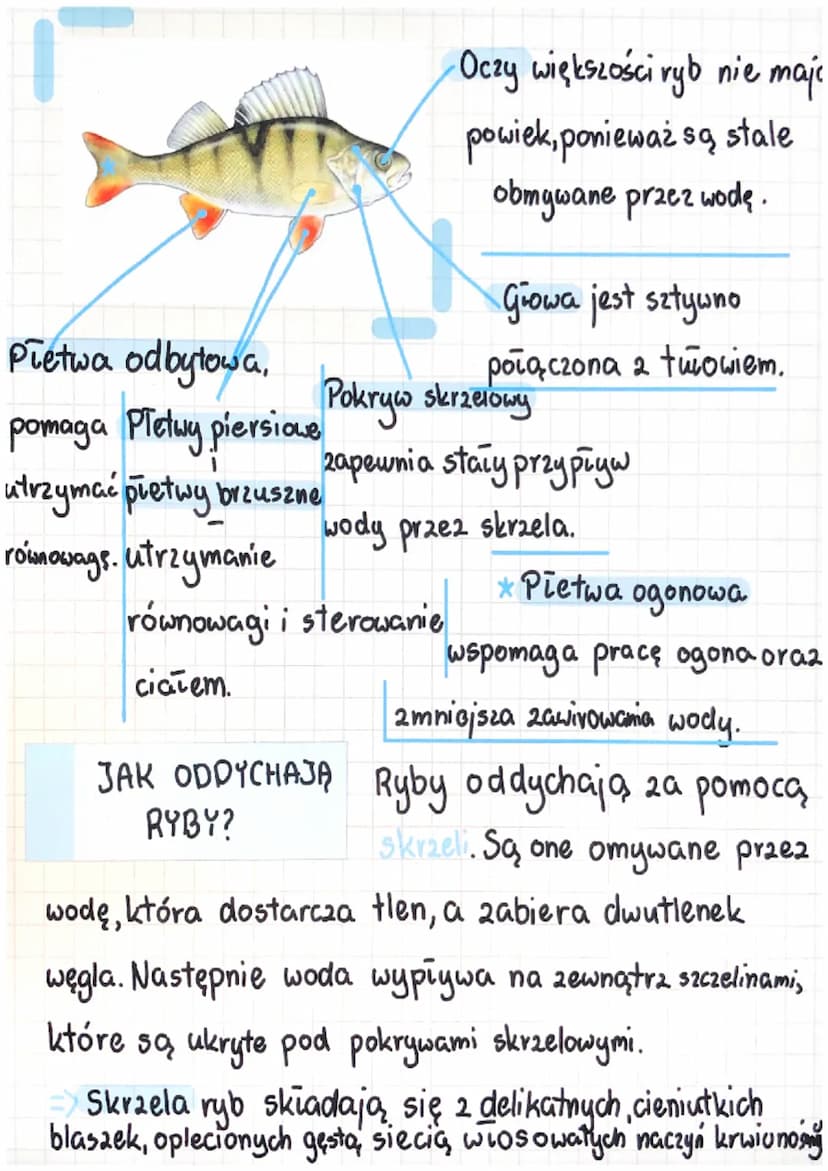 Oczy większości ryb nie mają
powiek, ponieważ są stale
obmywane przez wodę.
Głowa jest sztywno
połączona z tułowiem.
Płetwa odbytowa,
pomaga
utrzymać
równowagę.
Płetwy piersiowe
i
płetwy brzuszne
-
utrzymanie
równowagi i sterowanie
ciałem.
Pokryw skrzelowy
zapewnia stały przypływ
wody przez skrzela.
* Płetwa ogonowa
wspomaga pracę ogona oraz
zmniejsza zawirowania wody.
JAK ODDYCHAJĄ
RYBY?
Ryby oddychają za pomocą
skrzeli. Są one omywane przez
wodę, która dostarcza tlen, a zabiera dwutlenek
węgla. Następnie woda wypływa na zewnątrz szczelinami,
które są ukryte pod pokrywami skrzelowymi.
=> Skrzela ryb składają się z delikatnych, cieniutkich
blaszek, oplecionych gęstą siecią włosowatych naczyń